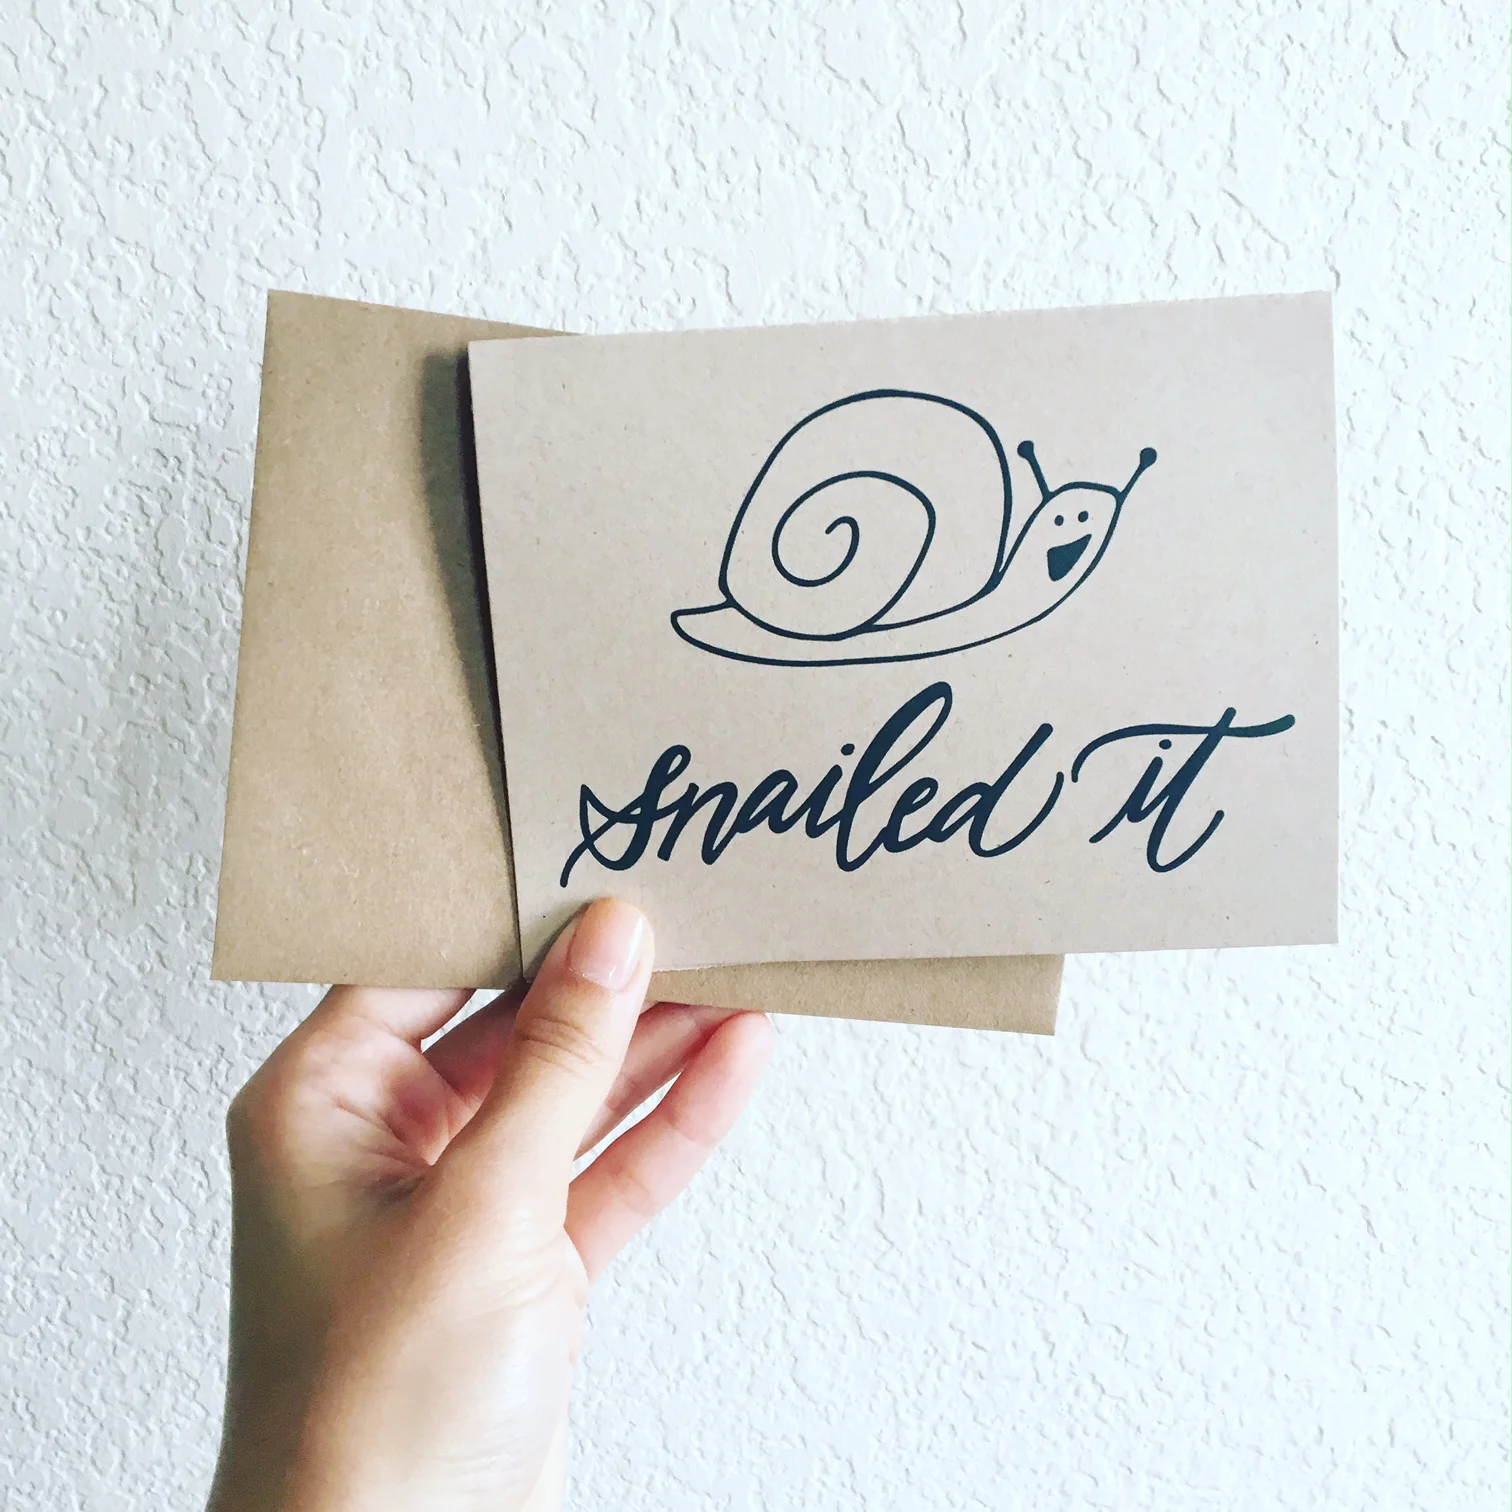 snailed it